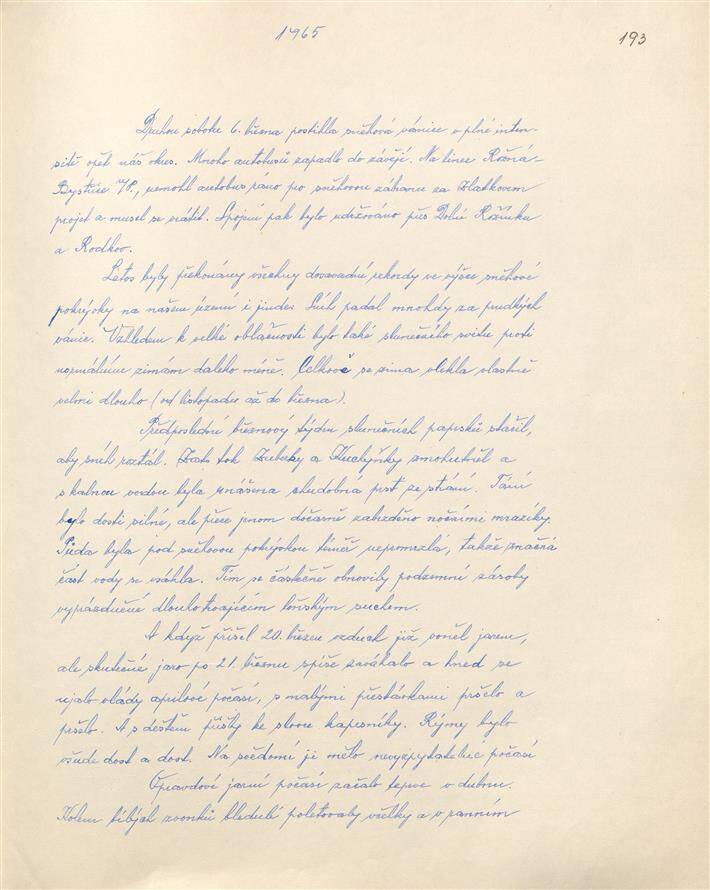 1965
193
Druhou sobotu 6. března postihla sněhová vánice v plné inten-
sitě opět náš okres. Mnoho autobusů zapadlo do závějí. Na lince Rožná-
Bystřice n/P., nemohl autobus ráno pro sněhovou zábranu za Zlatkovem
projet a musel se vrátit. Spojení pak bylo udržováno přes Dolní Rožínku
a Rodkov.
Letos byly překonány všechny dosavadní rekordy ve výšce sněhové
pokrývky na našem území i jinde. Sníh padal mnohdy za prudkých
vánic. Vzhledem k velké oblačnosti bylo také slunečního svitu proti
normálním zimám daleko méně. Celkově se zima vlekla vlastně
velmi dlouho (od listopadu až do března).
Předposlední březnový týden slunečních paprsků stačil,
aby sníh roztál. Zato tok a zmohutněl a
s kalnou vodou byla unášena chudobná prsť ze strání. Tání
bylo dosti silné, ale přece jenom dočasně zabrzděno nočními mrazíky.
Půda byla pod sněhovou pokrývkou téměř nepromrzlá, takže značná
část vody se vsákla. Tím se částečně obnovily podzemní zásoby
vyprázdněné dlouhotrvajícím loňským suchem.
A když přišel 20. březen vzduch již voněl jarem,
ale skutečné jaro po 21. březnu spíše zaváhalo a hned se
ujalo vlády aprílové počasí, s malými přestávkami pršelo a
pršelo. A s deštěm přišly ke slovu kapesníky. Rýmy bylo
všude dost a dost. Na svědomí ji mělo nevyzpytatelné počasí
Opravdové jarní počasí začalo teprve v dubnu.
Kolem bílých zvonků bledulí poletovaly včelky a v ranním